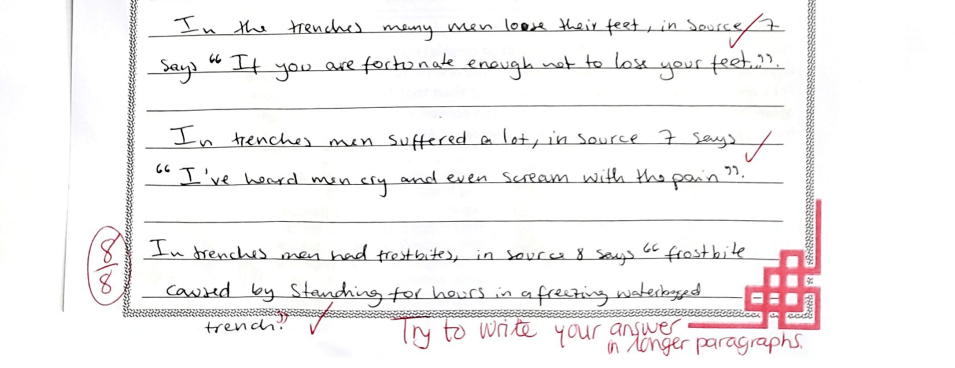 In the trenches many men loose their feet, in source 7
says "If you are fortunate enough not to lose your feet...".
In trenches men suffered a lot, in source 7 says
"I've heard men cry and even scream with the pain".
In trenches men had frostbites, in source 8 says "frostbite
caused by standing for hours in a freezing waterlogged
trench"
8/8
Try to write your answer
in longer paragraphs.